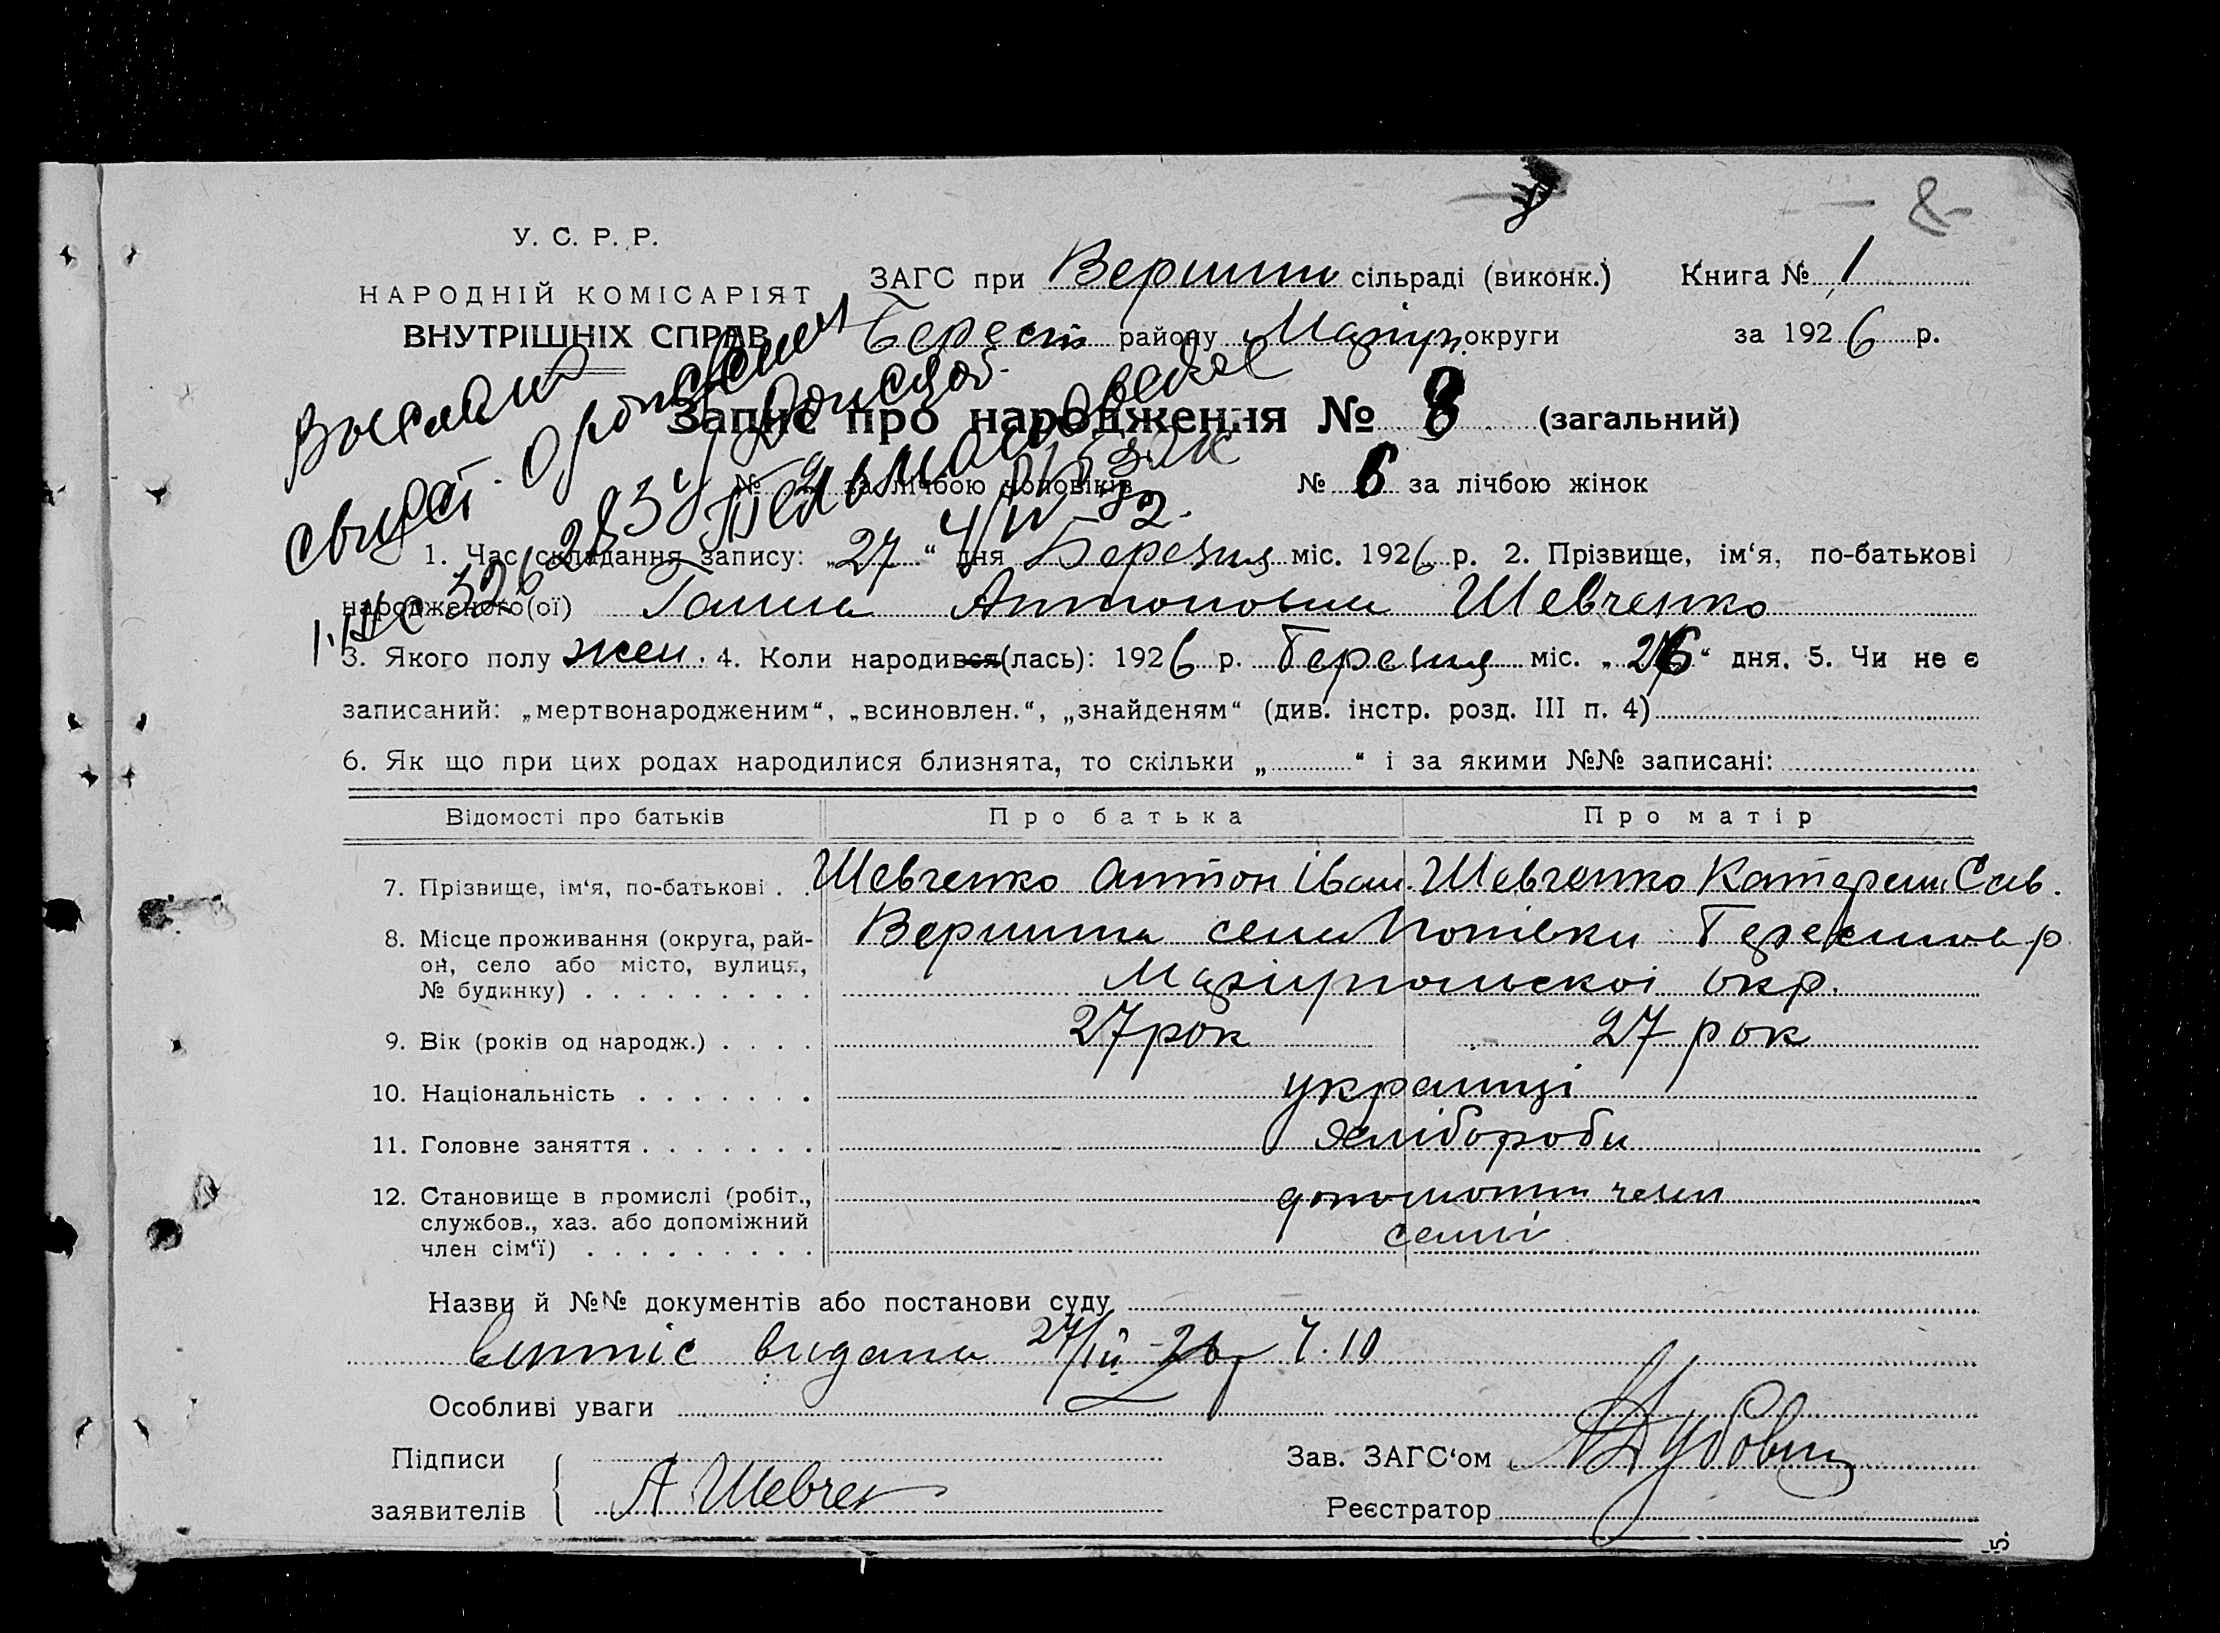 У. С. Р. Р.
НАРОДНІЙ КОМІСАРІЯТ
ВНУТРІШНІХ СПРАВ
ЗАГС при Вершин сільраді (виконк.) Книга № 1
Берест району Маріуп. округи за 1926 р.
Запис про народження № 8 (загальний)
№ 2 за лічбою чоловіків № 6 за лічбою жінок
Выслано
свидет. о рождении
4/IV-32.
1. Час складання запису: „27“ дня Березня міс. 1926 р. 2. Прізвище, ім‘я, по-батькові
народженого(ої) Ганна Антоновна Шевченко
3. Якого полу жен. 4. Коли народився(лась): 1926 р. Березня міс. „26“ дня. 5. Чи не є
записаний: „мертвонародженим“, „всиновлен.“, „знайденям“ (див. інстр. розд. III п. 4)
6. Як що при цих родах народилися близнята, то скільки „ “ і за якими №№ записані:
Відомості про батьків Про батька Про матір
7. Прізвище, ім‘я, по-батькові . . Шевченко Антон Іван. Шевченко Катерина Сав.
8. Місце проживання (округа, рай-
он, село або місто, вулиця,
№ будинку) . . . . . . . . .
села Попівки
Маріупольскоі окр.
9. Вік (років од народж.) . . . . 27 рок 27 рок
10. Національність . . . . . . . українці
11. Головне заняття . . . . . . . хлібороби
12. Становище в промислі (робіт.,
службов., хаз. або допоміжний
член сім‘ї) . . . . . . . . .
член
семі
Назви й №№ документів або постанови суду
витпіс видана 27/III-26р
Особливі уваги
Підписи
заявителів
А Шевчен
Зав. ЗАГС‘ом
Реєстратор
5.